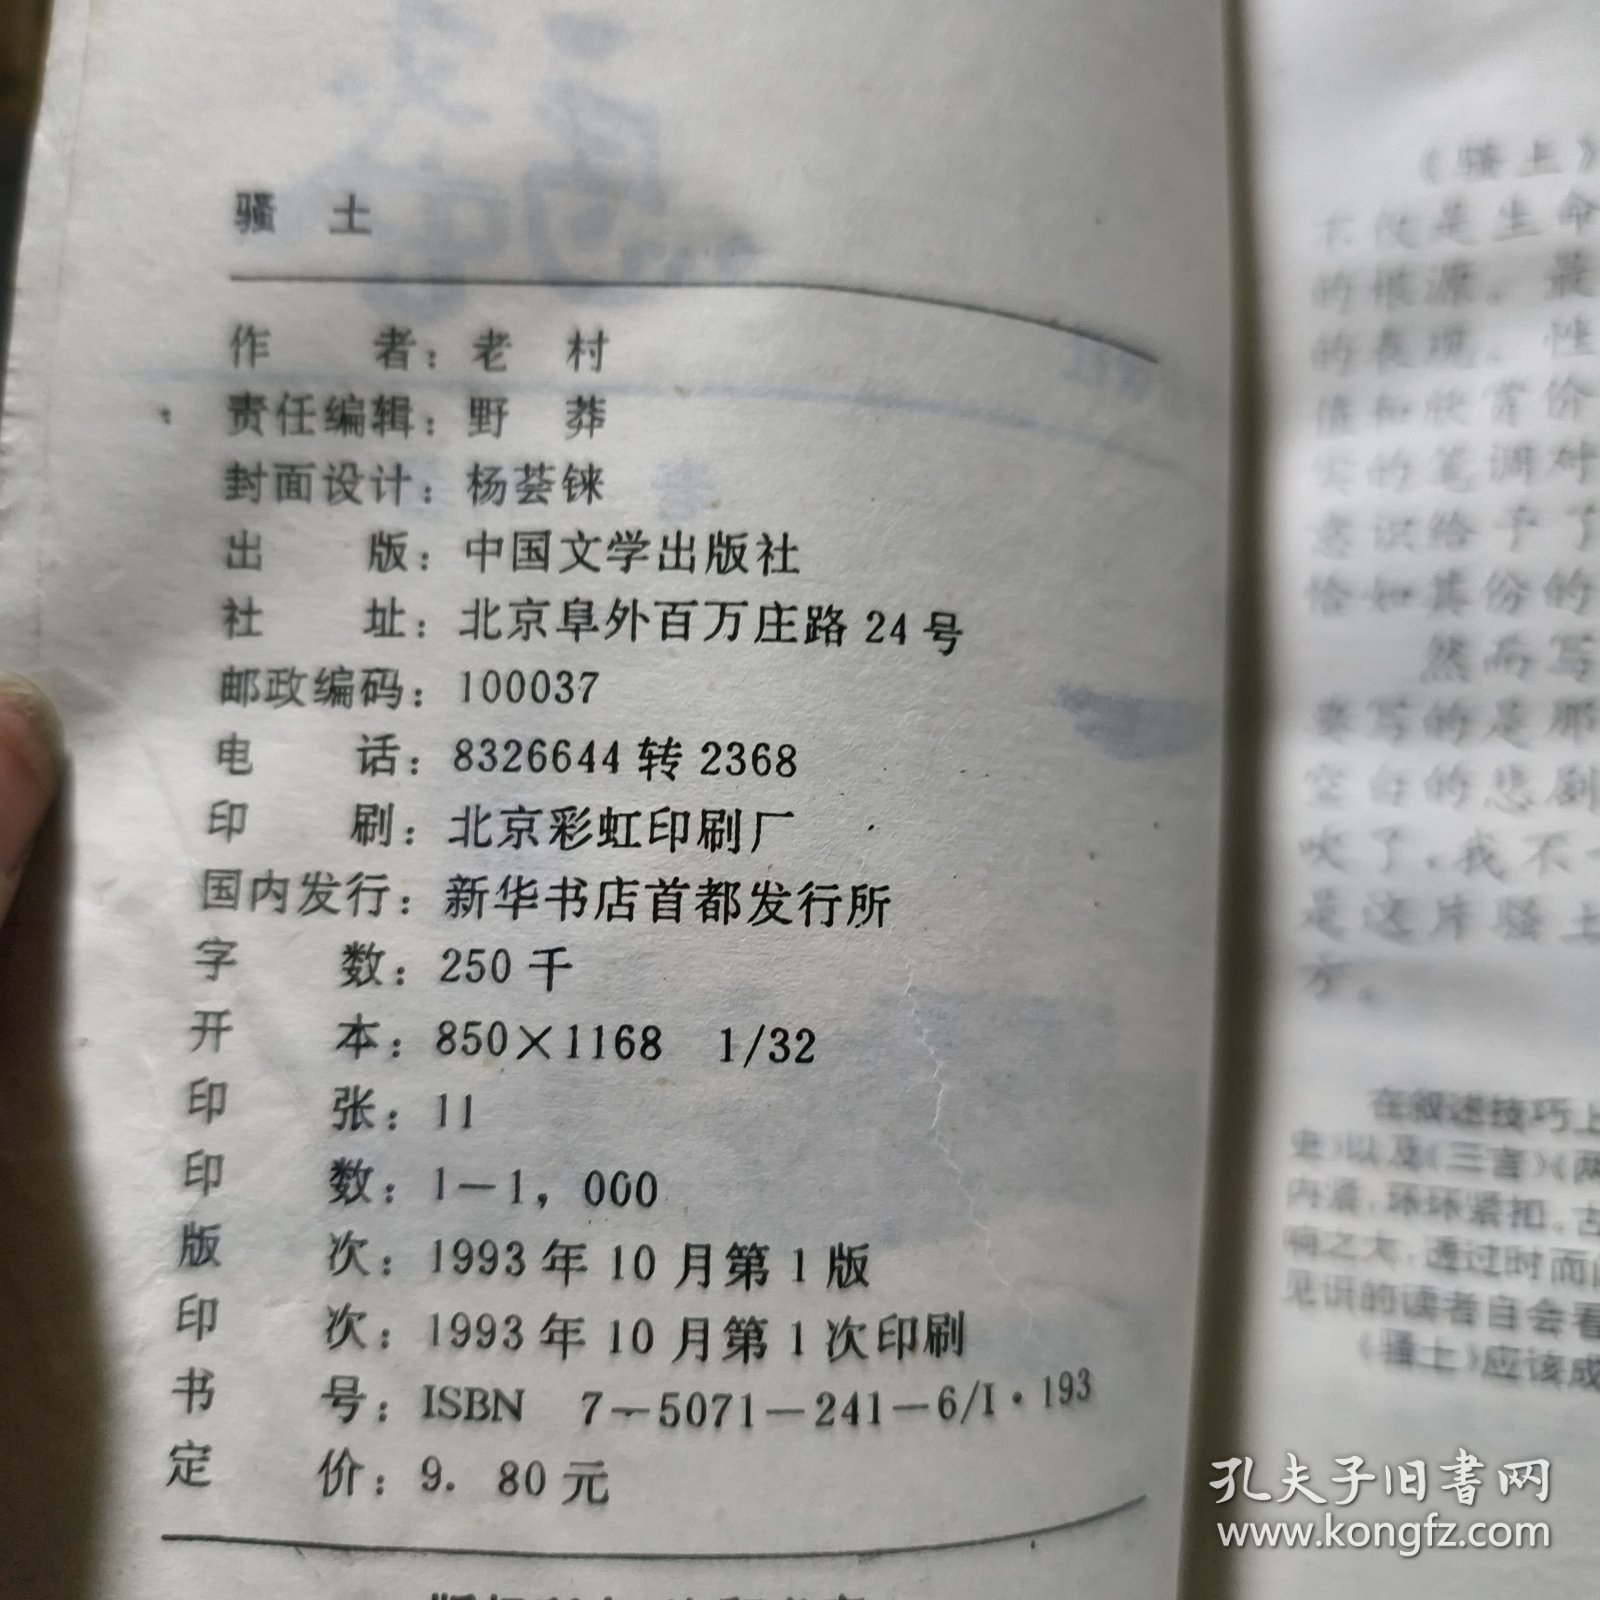 骚 土
作 者：老 村
责任编辑：野 莽
封面设计：杨荟铼
出 版：中国文学出版社
社 址：北京阜外百万庄路 24 号
邮政编码：100037
电 话：8326644 转 2368
印 刷：北京彩虹印刷厂
国内发行：新华书店首都发行所
字 数：250 千
开 本：850×1168 1/32
印 张：11
印 数：1—1，000
版 次：1993 年 10 月第 1 版
印 次：1993 年 10 月第 1 次印刷
书 号：ISBN 7—5071—241—6/I·193
定 价：9．80 元
《骚土》
不仅是生命
的根源。最
的表现。性
值和欣赏价
实的笔调对
意识给予了
恰如其份的
然而写
要写的是那
空白的悲剧
吹了。我不
是这片骚土
方。
在叙述技巧上
史》以及《三言》《两
内紧，环环紧扣。古
响之大，通过时而
见识的读者自会看
《骚土》应该成
孔夫子旧书网
www.kongfz.com